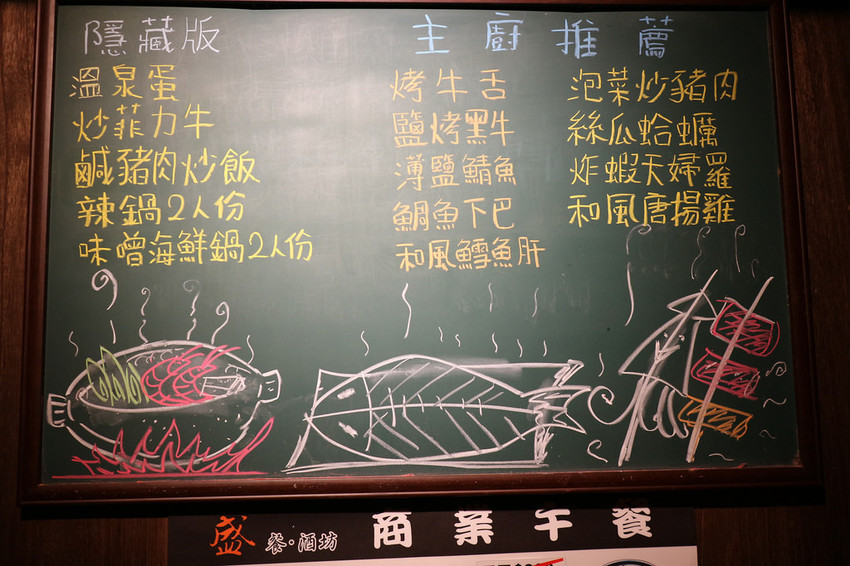 隱藏版
溫泉蛋
炒菲力牛
鹹豬肉炒飯
辣鍋2人份
味噌海鮮鍋2人份
主廚推薦
烤牛舌
鹽烤黑牛
薄鹽鯖魚
鯛魚下巴
和風鱈魚肝
泡菜炒豬肉
絲瓜蛤蠣
炸蝦天婦羅
和風唐揚雞
盛 餐·酒坊 商業午餐